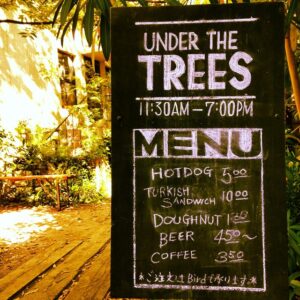 UNDER THE
TREES
11:30AM-7:00PM
MENU
HOTDOG 500
TURKISH
SANDWICH 1000
DOUGHNUT
BEER 450~
COFFEE 350
*ご注文はBirdで承ります*